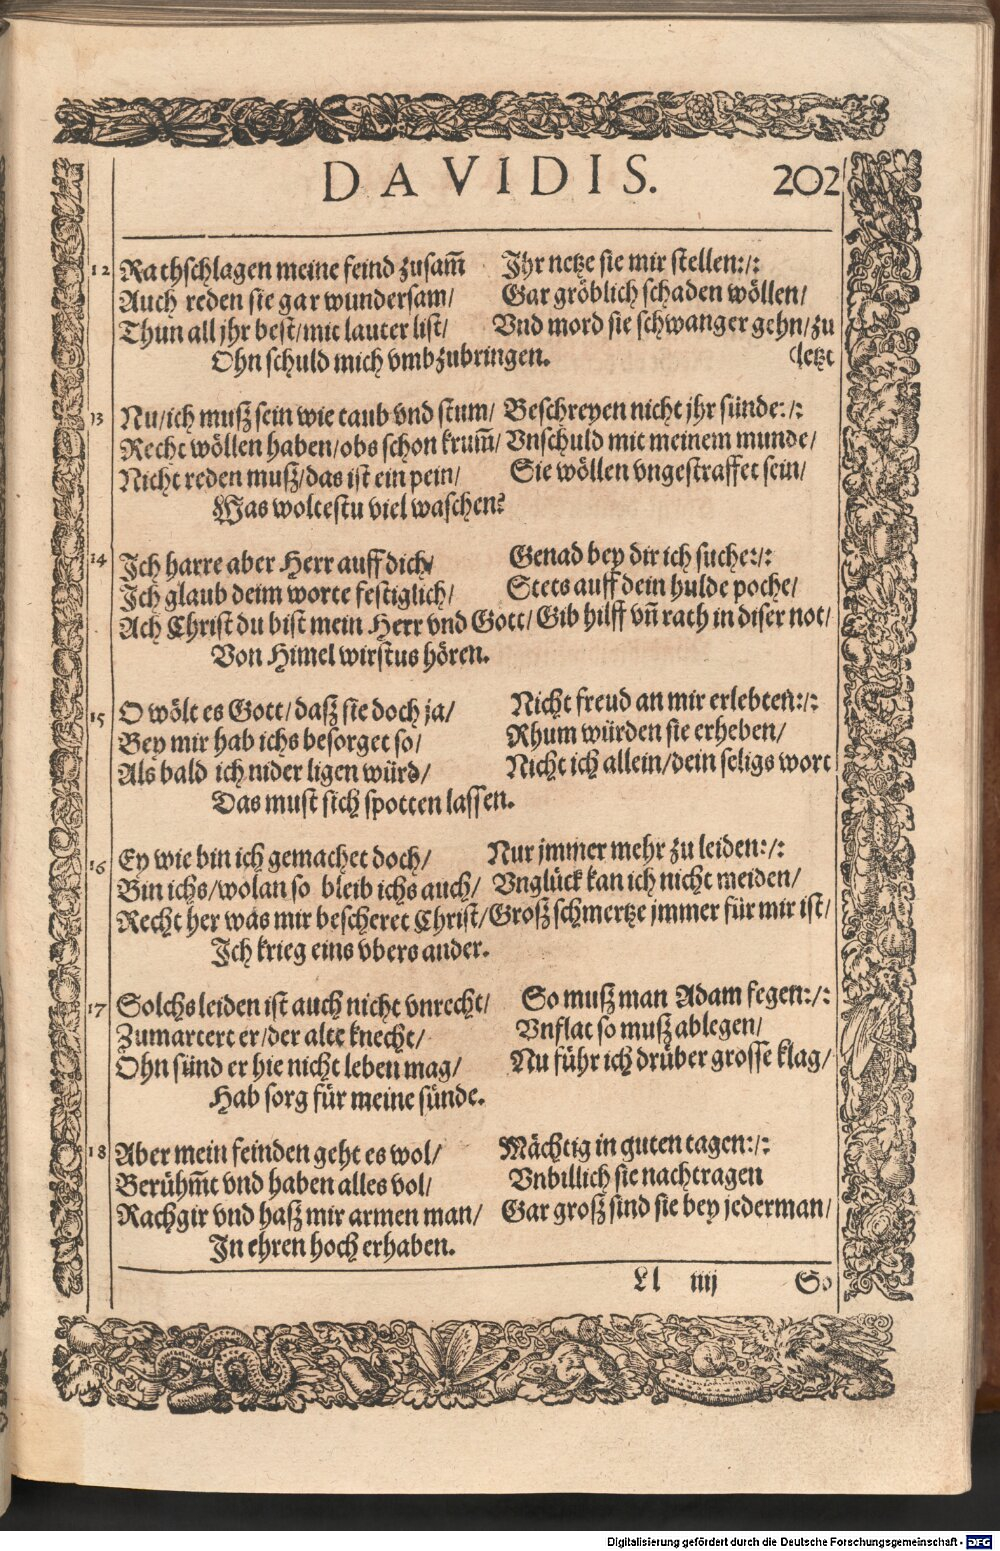 DAVIDIS. 202
12 Rathschlagen meine feind zusam̃ Jhr netze sie mir stellen:/:
Auch reden sie gar wundersam/ Gar gröblich schaden wöllen/
Thun all jhr best/mit lauter list/ Vnd mord sie schwanger gehn/zu
Ohn schuld mich vmbzubringen. (letzt
13 Nu/ich muß sein wie taub vnd stum/ Beschreyen nicht jhr sünde:/:
Recht wöllen haben/obs schon krum̃/ Vnschuld mit meinem munde/
Nicht reden muß/das ist ein pein/ Sie wöllen vngestraffet sein/
Was woltestu viel waschen?
14 Jch harre aber Herr auff dich/ Genad bey dir ich suche:/:
Jch glaub deim worte festiglich/ Stets auff dein hulde poche/
Ach Christ du bist mein Herr vnd Gott/ Gib hilff vñ rath in diser not/
Von Himel wirstus hören.
15 O wölt es Gott/daß sie doch ja/ Nicht freud an mir erlebten:/:
Bey mir hab ichs besorget so/ Rhum würden sie erheben/
Als bald ich nider ligen würd/ Nicht ich allein/dein seligs wort
Das must sich spotten lassen.
16 Ey wie bin ich gemachet doch/ Nur jmmer mehr zu leiden:/:
Bin ichs/wolan so bleib ichs auch/ Vnglück kan ich nicht meiden/
Recht her was mir bescheret Christ/ Groß schmertze jmmer für mir ist/
Jch krieg eins vbers ander.
17 Solchs leiden ist auch nicht vnrecht/ So muß man Adam fegen:/:
Zumartert er/der alte knecht/ Vnflat so muß ablegen/
Ohn sünd er hie nicht leben mag/ Nu führ ich drüber grosse klag/
Hab sorg für meine sünde.
18 Aber mein feinden geht es wol/ Mächtig in guten tagen:/:
Berühm̃t vnd haben alles vol/ Vnbillich sie nachtragen
Rachgir vnd haß mir armen man/ Gar groß sind sie bey jederman/
In ehren hoch erhaben.
Ll iiij So
Digitalisierung gefördert durch die Deutsche Forschungsgemeinschaft - DFG